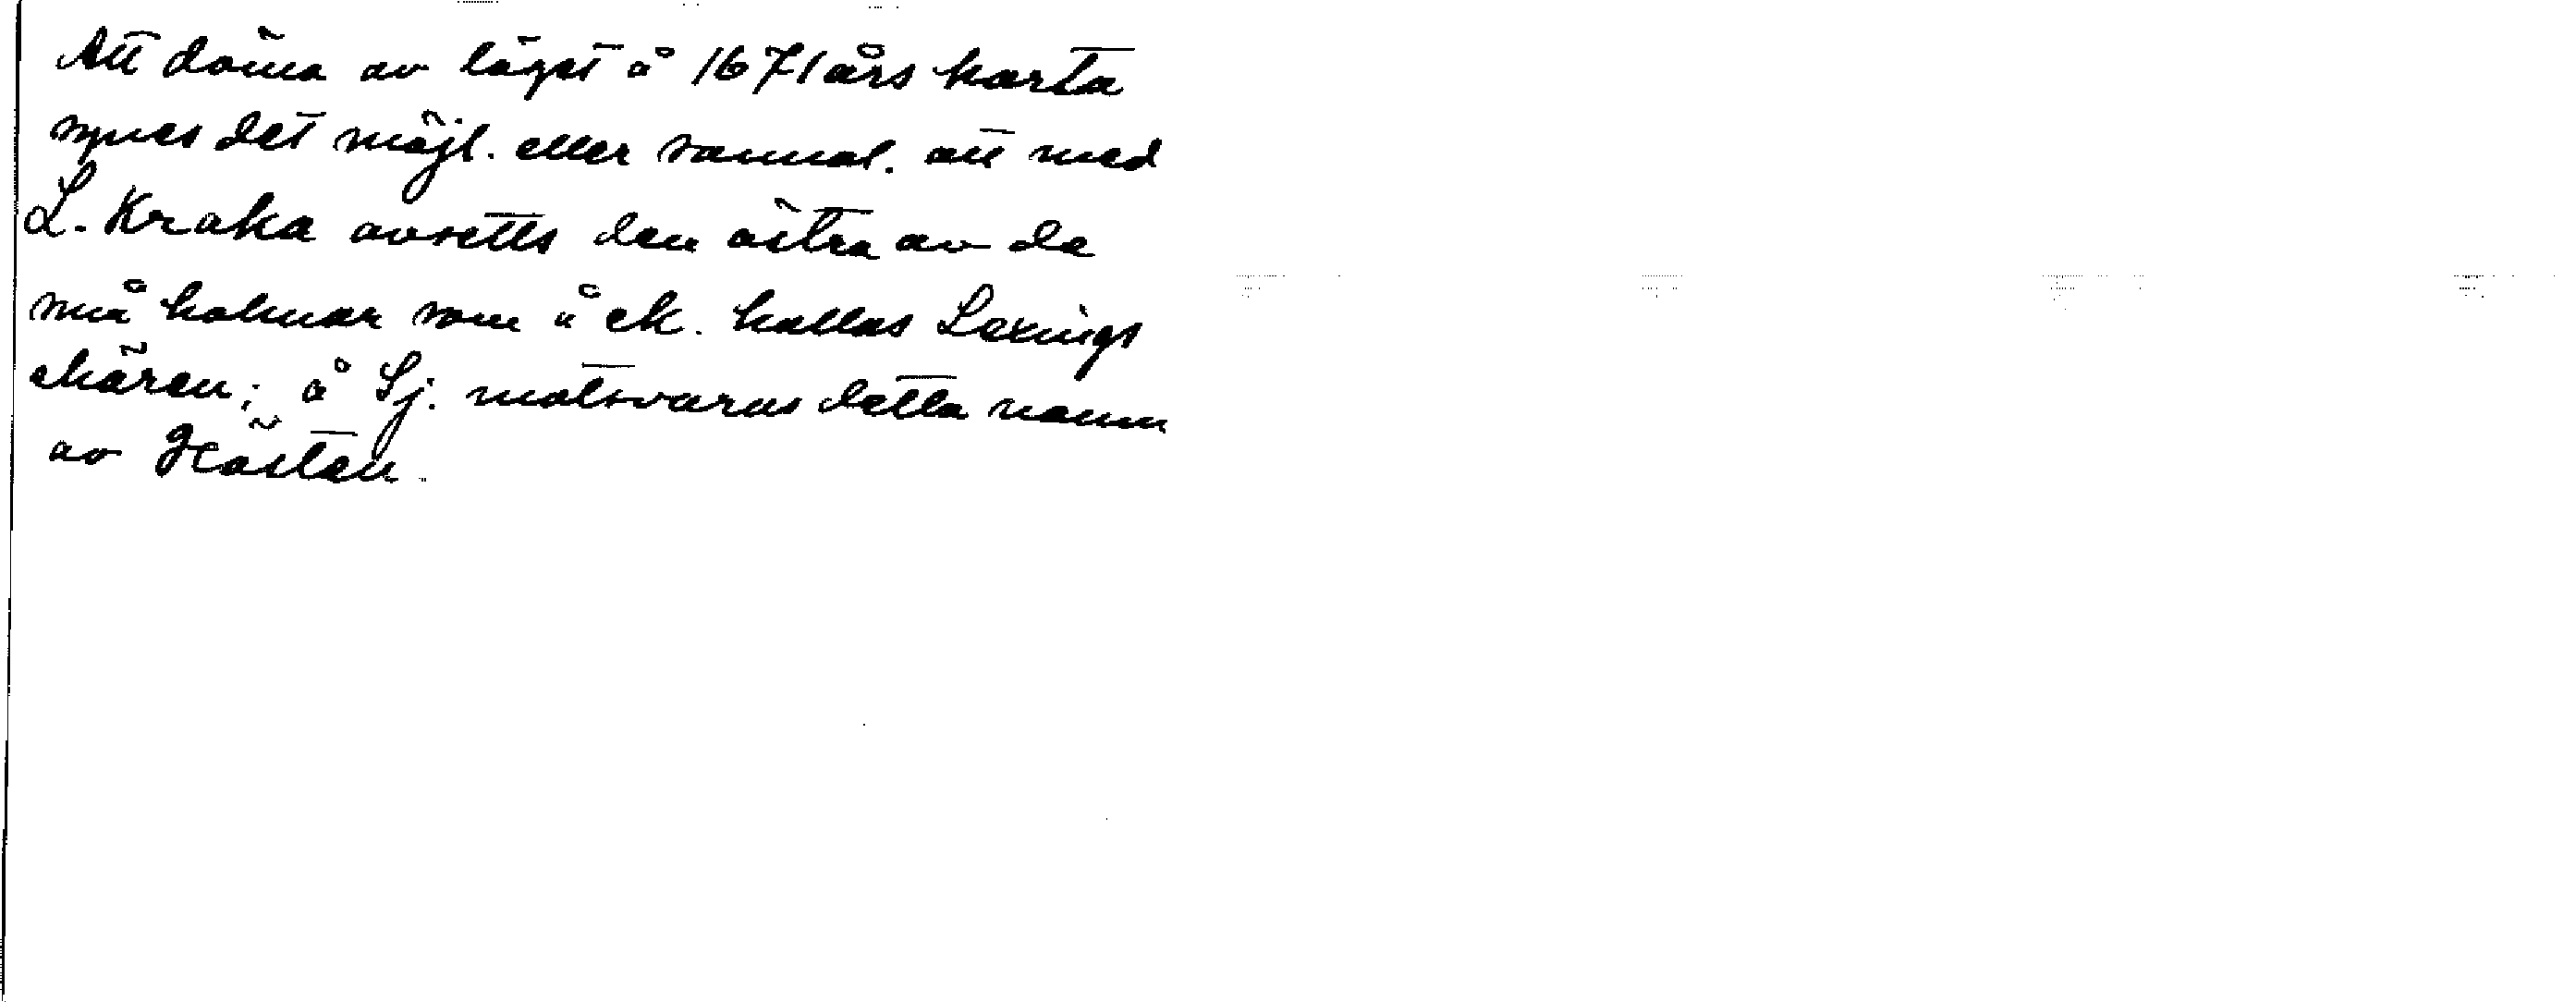 Att döma av läget å 1671 års karta
synes det möjl. eller sannol. att med
L. Kraka avsetts den östra av de
små holmar som å ek. kallas Laxings
skären; å Sj. motsvaras detta namn
av Hästen.